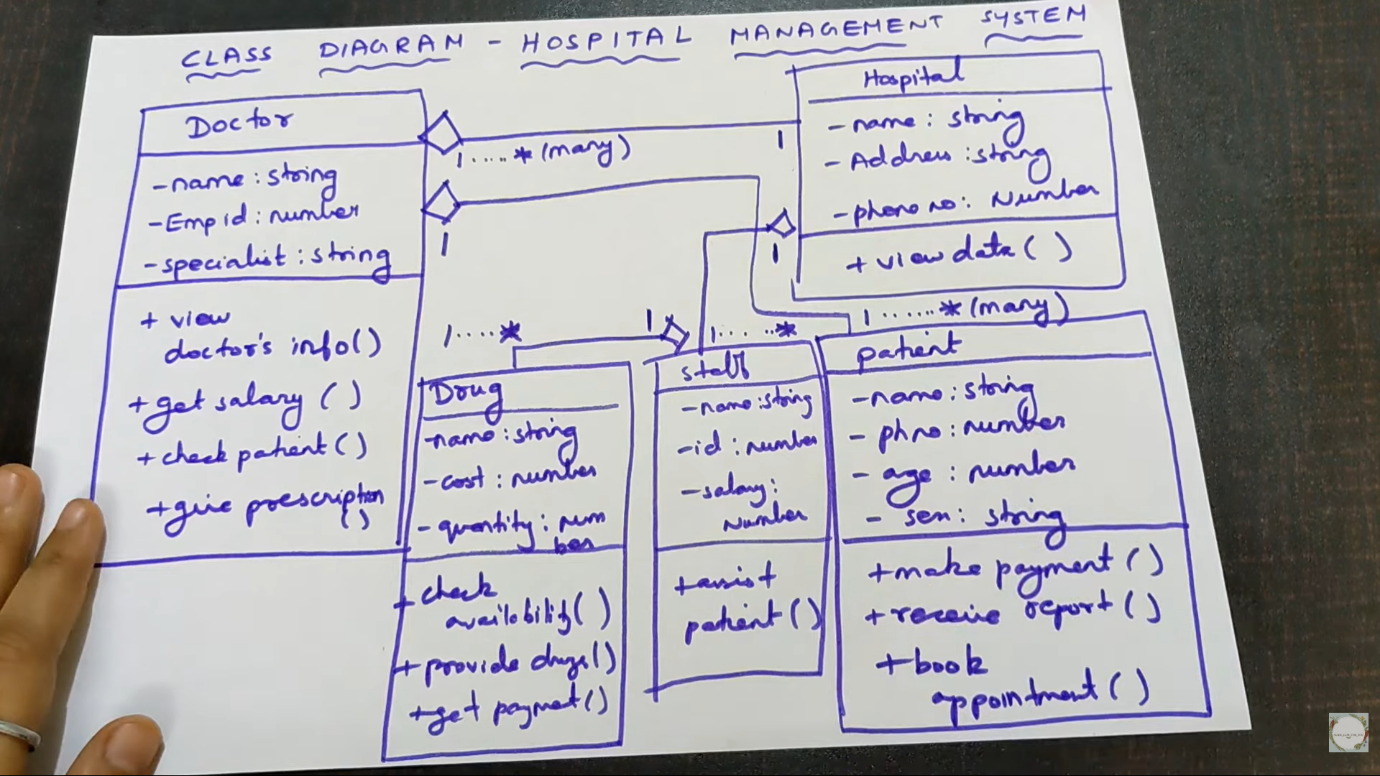 CLASS DIAGRAM - HOSPITAL MANAGEMENT SYSTEM
Doctor
-name : string
-Emp id : number
-specialist : string
+ view
doctor's info()
+get salary ( )
+check patient ( )
+give prescription
( )
1 ..... * (many)
1
1
Hospital
-name : string
-Address : string
-phone no : Number
+ view data ( )
1
1 ...... * (many)
1 .... *
1
1 ..... *
Drug
-name : string
-cost : number
-quantity : num
ber
+check
availability( )
+ provide drugs()
+get payment()
staff
-name : string
-id : number
-salary :
Number
+assist
patient ( )
patient
-name : string
- ph no : number
- age : number
- sex : string
+make payment ( )
+receive report ( )
+book
appointment ( )